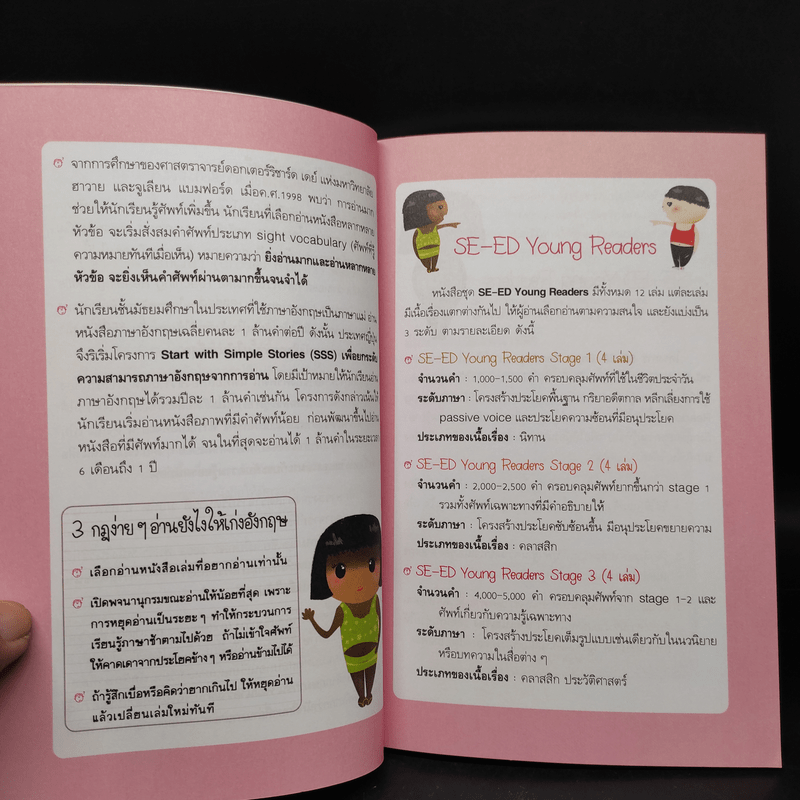 จากการศึกษาของศาสตราจารย์ดอกเตอร์ริชาร์ด เดย์ แห่งมหาวิทยาลัย
ฮาวาย และจูเลียน แบมฟอร์ด เมื่อค.ศ.1998 พบว่า การอ่านมาก
ช่วยให้นักเรียนรู้ศัพท์เพิ่มขึ้น นักเรียนที่เลือกอ่านหนังสือหลากหลาย
หัวข้อ จะเริ่มสั่งสมคำศัพท์ประเภท sight vocabulary (ศัพท์ที่รู้
ความหมายทันทีเมื่อเห็น) หมายความว่า ยิ่งอ่านมากและอ่านหลากหลาย
หัวข้อ จะยิ่งเห็นคำศัพท์ผ่านตามากขึ้นจนจำได้
นักเรียนชั้นมัธยมศึกษาในประเทศที่ใช้ภาษาอังกฤษเป็นภาษาแม่ อ่าน
หนังสือภาษาอังกฤษเฉลี่ยคนละ 1 ล้านคำต่อปี ดังนั้น ประเทศญี่ปุ่น
จึงริเริ่มโครงการ Start with Simple Stories (SSS) เพื่อยกระดับ
ความสามารถภาษาอังกฤษจากการอ่าน โดยมีเป้าหมายให้นักเรียนอ่าน
ภาษาอังกฤษได้รวมปีละ 1 ล้านคำเช่นกัน โครงการดังกล่าวเน้นให้
นักเรียนเริ่มอ่านหนังสือภาพที่มีคำศัพท์น้อย ก่อนพัฒนาขึ้นไปอ่าน
หนังสือที่มีศัพท์มากได้ จนในที่สุดจะอ่านได้ 1 ล้านคำในระยะเวลา
6 เดือนถึง 1 ปี
3 กฎง่าย ๆ อ่านยังไงให้เก่งอังกฤษ
เลือกอ่านหนังสือเล่มที่อยากอ่านเท่านั้น
เปิดพจนานุกรมขณะอ่านให้น้อยที่สุด เพราะ
การหยุดอ่านเป็นระยะ ๆ ทำให้กระบวนการ
เรียนรู้ภาษาช้าตามไปด้วย ถ้าไม่เข้าใจศัพท์
ให้คาดเดาจากประโยคข้าง ๆ หรืออ่านข้ามไปได้
ถ้ารู้สึกเบื่อหรือคิดว่ายากเกินไป ให้หยุดอ่าน
แล้วเปลี่ยนเล่มใหม่ทันที
SE-ED Young Readers
หนังสือชุด SE-ED Young Readers มีทั้งหมด 12 เล่ม แต่ละเล่ม
มีเนื้อเรื่องแตกต่างกันไป ให้ผู้อ่านเลือกอ่านตามความสนใจ และยังแบ่งเป็น
3 ระดับ ตามรายละเอียด ดังนี้
SE-ED Young Readers Stage 1 (4 เล่ม)
จำนวนคำ : 1,000-1,500 คำ ครอบคลุมศัพท์ที่ใช้ในชีวิตประจำวัน
ระดับภาษา : โครงสร้างประโยคพื้นฐาน กริยาอดีตกาล หลีกเลี่ยงการใช้
passive voice และประโยคความซ้อนที่มีอนุประโยค
ประเภทของเนื้อเรื่อง : นิทาน
SE-ED Young Readers Stage 2 (4 เล่ม)
จำนวนคำ : 2,000-2,500 คำ ครอบคลุมศัพท์ยากขึ้นกว่า stage 1
รวมทั้งศัพท์เฉพาะทางที่มีคำอธิบายให้
ระดับภาษา : โครงสร้างประโยคซับซ้อนขึ้น มีอนุประโยคขยายความ
ประเภทของเนื้อเรื่อง : คลาสสิก
SE-ED Young Readers Stage 3 (4 เล่ม)
จำนวนคำ : 4,000-5,000 คำ ครอบคลุมศัพท์จาก stage 1-2 และ
ศัพท์เกี่ยวกับความรู้เฉพาะทาง
ระดับภาษา : โครงสร้างประโยคเต็มรูปแบบเช่นเดียวกับในนวนิยาย
หรือบทความในสื่อต่าง ๆ
ประเภทของเนื้อเรื่อง : คลาสสิก ประวัติศาสตร์